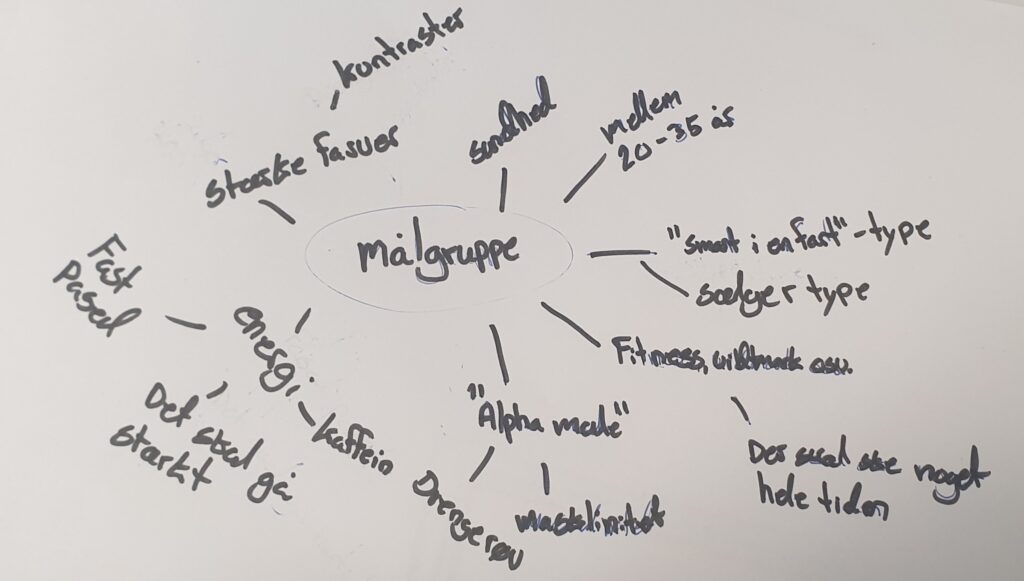 kontraster
stærke farver
sundhed
mellem
20-35 år
målgruppe
"smart i en fart"-type
sælger type
Fast
Pased
energi
Fitness, wildmark osv.
Det skal gå
stærkt
kaffein
"Alpha male"
Drengerøv
maskulinitet
Der skal ske noget
hele tiden